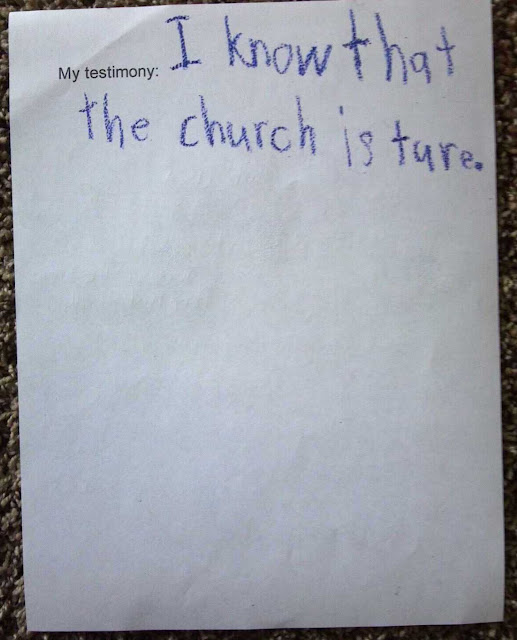 My testimony: I know that
the church is ture.